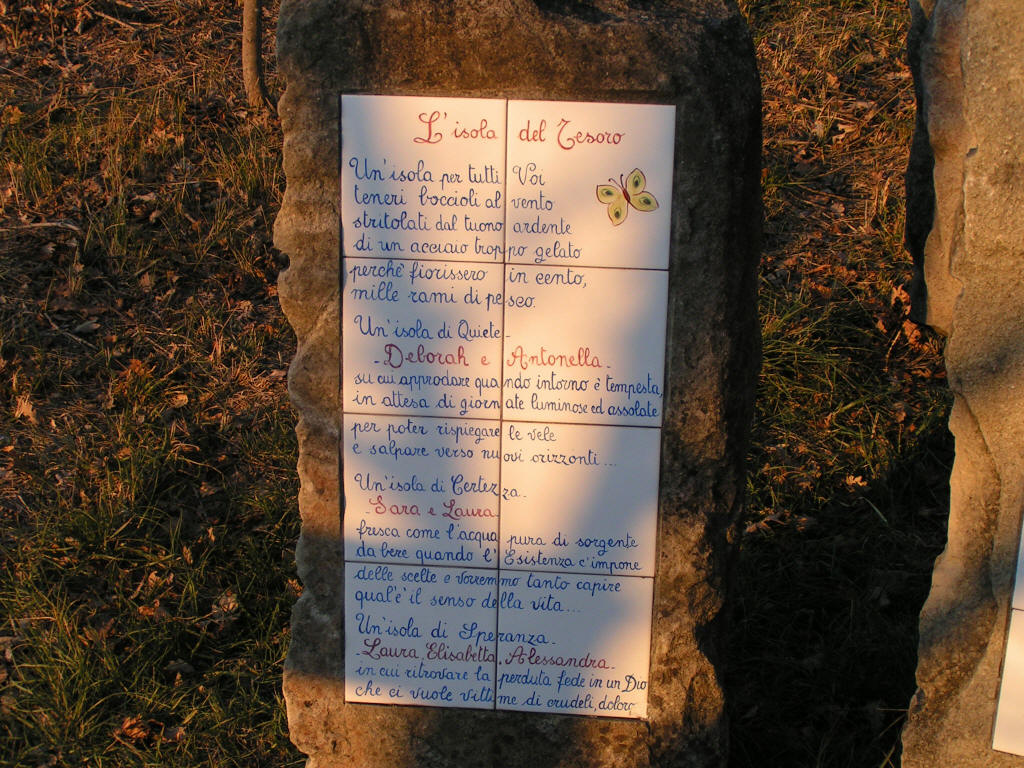 L'isola del Tesoro
Un'isola per tutti Voi
teneri boccioli al vento
stritolati dal tuono ardente
di un acciaio troppo gelato
perchè fiorissero in cento,
mille rami di pesco.
Un'isola di Quiete-
-Deborah e Antonella-
su cui approdare quando intorno è tempesta,
in attesa di giornate luminose ed assolate
per poter rispiegare le vele
e salpare verso nuovi orizzonti...
Un'isola di Certezza-
-Sara e Laura-
fresca come l'acqua pura di sorgente
da bere quando l'Esistenza c'impone
delle scelte e vorremmo tanto capire
qual'è il senso della vita...
Un'isola di Speranza-
-Laura, Elisabetta, Alessandra-
in cui ritrovare la perduta fede in un Dio
che ci vuole vittime di crudeli, doloro